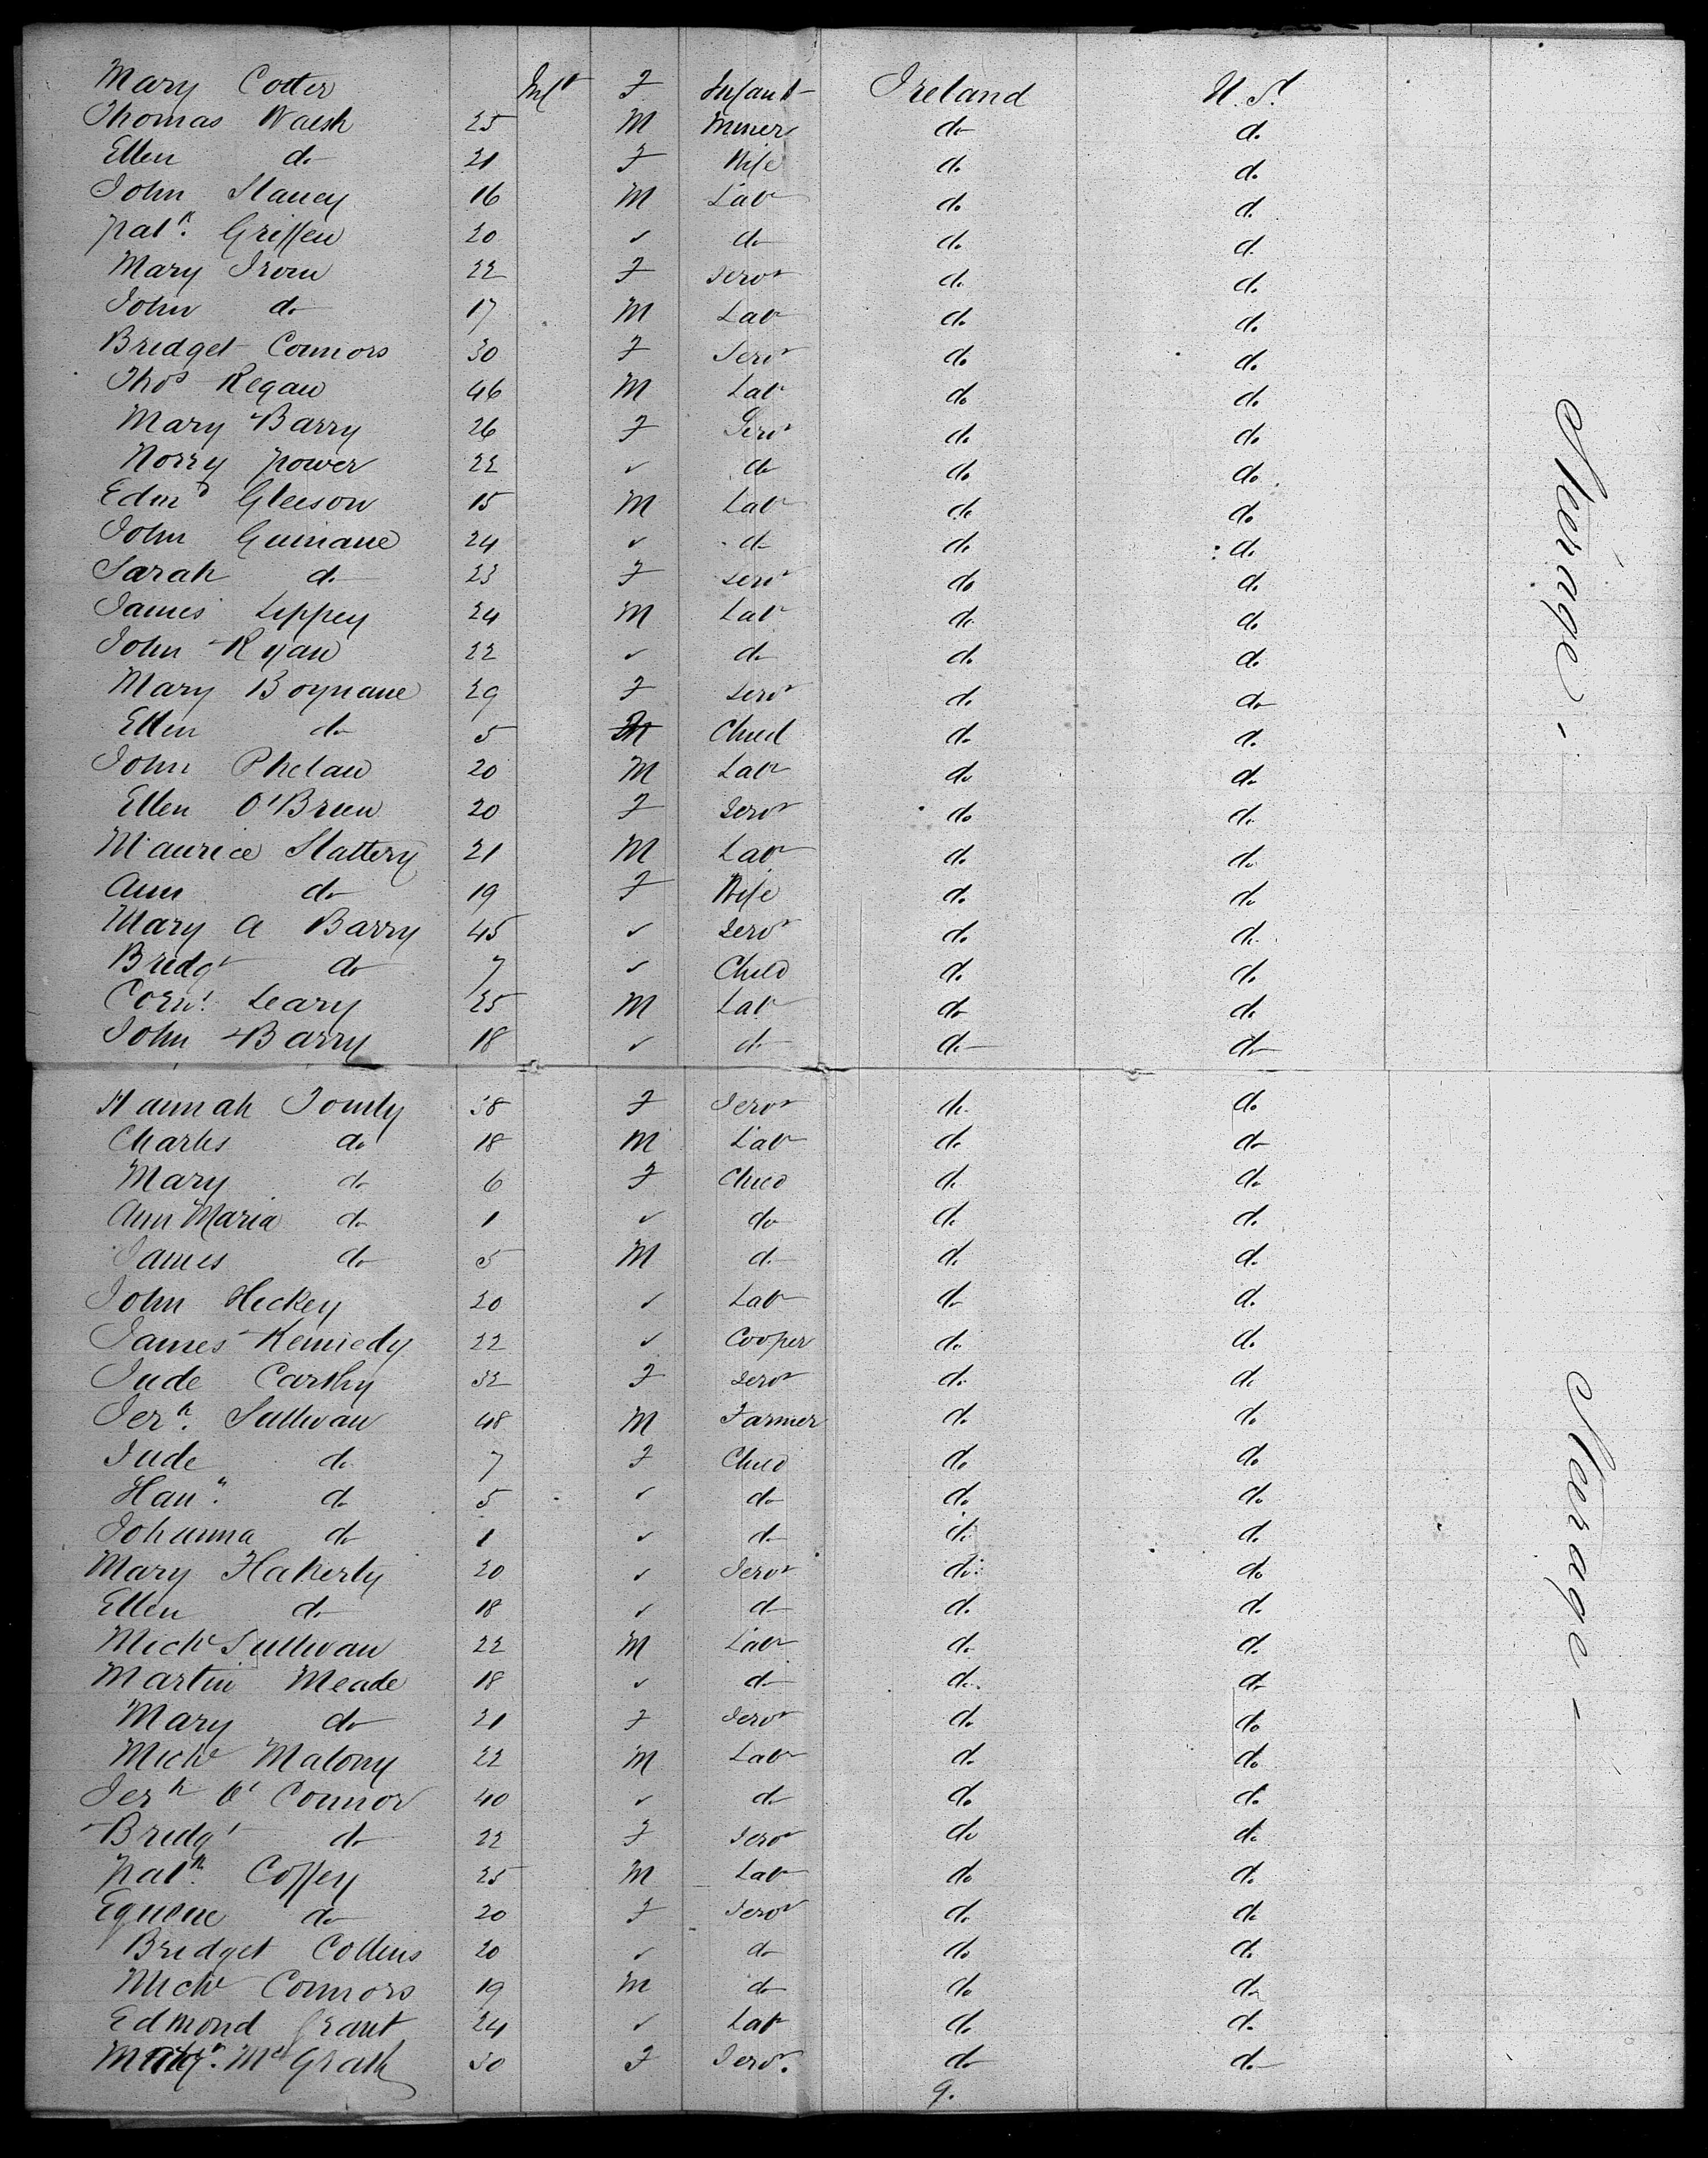 Mary Cotter Inft F Infant Ireland U.S.
Thomas Walsh 25 M Miner do do
Ellen do 21 F Wife do do
John Slancy 16 M Labr do do
Patk. Griffen 20 ✓ do do do
Mary Irown 22 F Servt do do
John do 17 M Labr do do
Bridget Connors 30 F Servt do do
Thos Regan 46 M Labr do do
Mary Barry 26 F Servt do do
Norry Power 22 ✓ do do do
Edmd Gleeson 15 M Labr do do
John Guinane 24 ✓ do do do
Sarah do 23 F Servt do do
James Lippey 24 M Labr do do
John Ryan 22 ✓ do do do
Mary Boynane 29 F Servt do do
Ellen do 5 Child do do
John Phelan 20 M Labr do do
Ellen O'Brien 20 F Servt do do
Maurice Slattery 21 M Labr do do
Ann do 19 F Wife do do
Mary A Barry 45 ✓ Servt do do
Bridgt do 7 ✓ Child do do
Corns. Leary 25 M Labr do do
John Barry 18 ✓ do do do
Steerage -
Hannah Tomly 38 F Servt do do
Charles do 18 M Labr do do
Mary do 6 F Child do do
Ann Maria do 1 ✓ do do do
James do 5 M do do do
John Hickey 20 ✓ Labr do do
James Kennedy 22 ✓ Cooper do do
Jude Carthy 32 F Servt do do
Jerh. Sullivan 48 M Farmer do do
Jude do 7 F Child do do
Hanh. do 5 ✓ do do do
Johanna do 1 ✓ do do do
Mary Flaherty 20 ✓ Servt do do
Ellen do 18 ✓ do do do
Michl Sullivan 22 M Labr do do
Martin Meade 18 ✓ do do do
Mary do 21 F Servt do do
Michl Malony 22 M Labr do do
Jerh O'Connor 40 ✓ do do do
Bridgt do 22 F Servt do do
Patk. Coffey 25 M Labr do do
do 20 F Servt do do
Bridget Collins 20 ✓ do do do
Michl Connors 19 M do do do
Edmond Grant 24 ✓ Labr do do
McGrath 30 F Servt. do do
9.
Steerage -